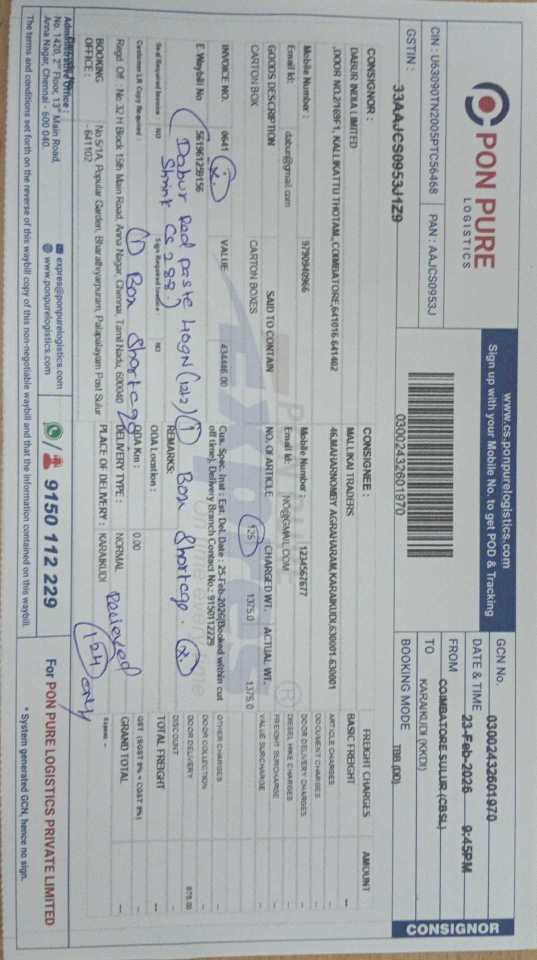 PON PURE
LOGISTICS
CIN : U63090TN2005PTC56468 PAN : AAJCS0953J
GSTIN : 33AAJCS0953J1Z9
www.cs.ponpurelogistics.com
Sign up with your Mobile No. to get POD & Tracking
03002432601970
GCN No. 03002432601970
DATE & TIME 23-Feb-2026 9:45PM
FROM COIMBATORE SULUR (CBSL)
TO KARAIKUDI (KKDI)
BOOKING MODE TBB (DD)
CONSIGNOR
CONSIGNOR :
DABUR INDIA LIMITED
,DOOR NO.2/169F1, KALLIKATTU THOTAM,,COIMBATORE,641016 641402
Mobile Number : 9790940966
Email Id: dabur@gmail.com
CONSIGNEE :
MALLIKAI TRADERS
46,MAHARNOMBY AGRAHARAM,KARAIKUDI,630001-630001
Mobile Number : 1234567677
Email Id: NO@GMAIL.COM
GOODS DESCRIPTION SAID TO CONTAIN NO. OF ARTICLE CHARGED WT. ACTUAL WT.
CARTON BOX CARTON BOXES 125 1375.0 1375.0
INVOICE NO. 0641 VALUE 434446.00
Cus. Spec. Inst : Est. Del. Date : 25-Feb-2026(Booked within cut
off time), Delivery Branch Contact No.: 9150112229
E. Waybill No 561961259156
REMARKS:
Dabur Red paste 40gN (12x2) 1 Box Shortage.
Shrink CS 288)
Seal Required Invoice : NO Sign Required Invoice : NO
Customer LR Copy Required :
ODA Location :
ODA Km : 0.00
1 Box Shortage
Regd. Off : No 32 H Block 15th Main Road, Anna Nagar, Chennai, Tamil Nadu, 600040
DELIVERY TYPE : NORMAL
BOOKING OFFICE : No 5/1A, Popular Garden, Bharathiyarpuram, Palapalayam Post Sulur - 641102
PLACE OF DELIVERY : KARAIKUDI
Received
124 only
FREIGHT CHARGES AMOUNT
BASIC FREIGHT --
ARTICLE CHARGES -
DOCUMENT CHARGES -
DOOR DELIVERY CHARGES -
DIESEL HIKE CHARGES -
FREIGHT SURCHARGE -
VALUE SURCHARGE -
OTHER CHARGES -
DOOR COLLECTION -
DOOR DELIVERY 875.00
DISCOUNT -
TOTAL FREIGHT --
GST (SGST 9% + CGST 9%)
GRAND TOTAL --
Administrative Office
No. 1420, 2nd Floor, 13th Main Road,
Anna Nagar, Chennai - 600 040.
expres@ponpurelogistics.com
www.ponpurelogistics.com
9150 112 229
For PON PURE LOGISTICS PRIVATE LIMITED
The terms and conditions set forth on the reverse of this waybill copy of this non-negotiable waybill and that the information contained on this waybill.
* System generated GCN, hence no sign.